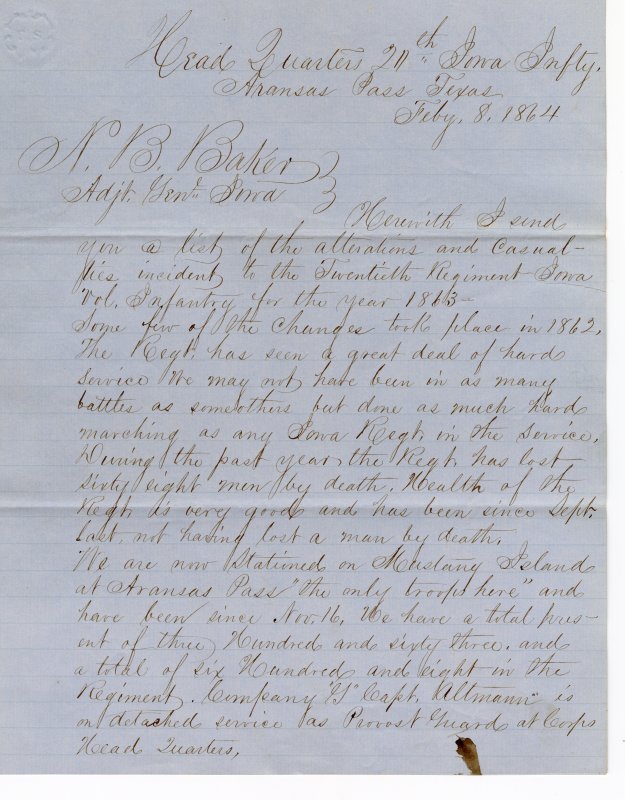 Head Quarters 20th Iowa Infty.
Aransas Pass Texas
Feby. 8. 1864
N. B. Baker
Adjt. Genl. Iowa
Herewith I send
you a list of the alterations and casual-
ties incident to the Twentieth Regiment Iowa
Vol. Infantry for the year 1863-
Some few of the changes took place in 1862.
The Regt. has seen a great deal of hard
service We may not have been in as many
battles as some others but done as much hard
marching as any Iowa Regt. in the service.
During the past year, the Regt. has lost
sixty eight men by death. Health of the
Regt. is very good and has been since Sept.
last, not having lost a man by death.
We are now stationed on Mustang Island
at Aransas Pass "the only troops here" and
have been since Nov. 16. We have a total pres-
ent of three Hundred and sixty three. and
a total of six Hundred and eight in the
Regiment. Company "G" Capt. Altmann" is
on detached service as Provost Guard at Corps
Head Quarters,